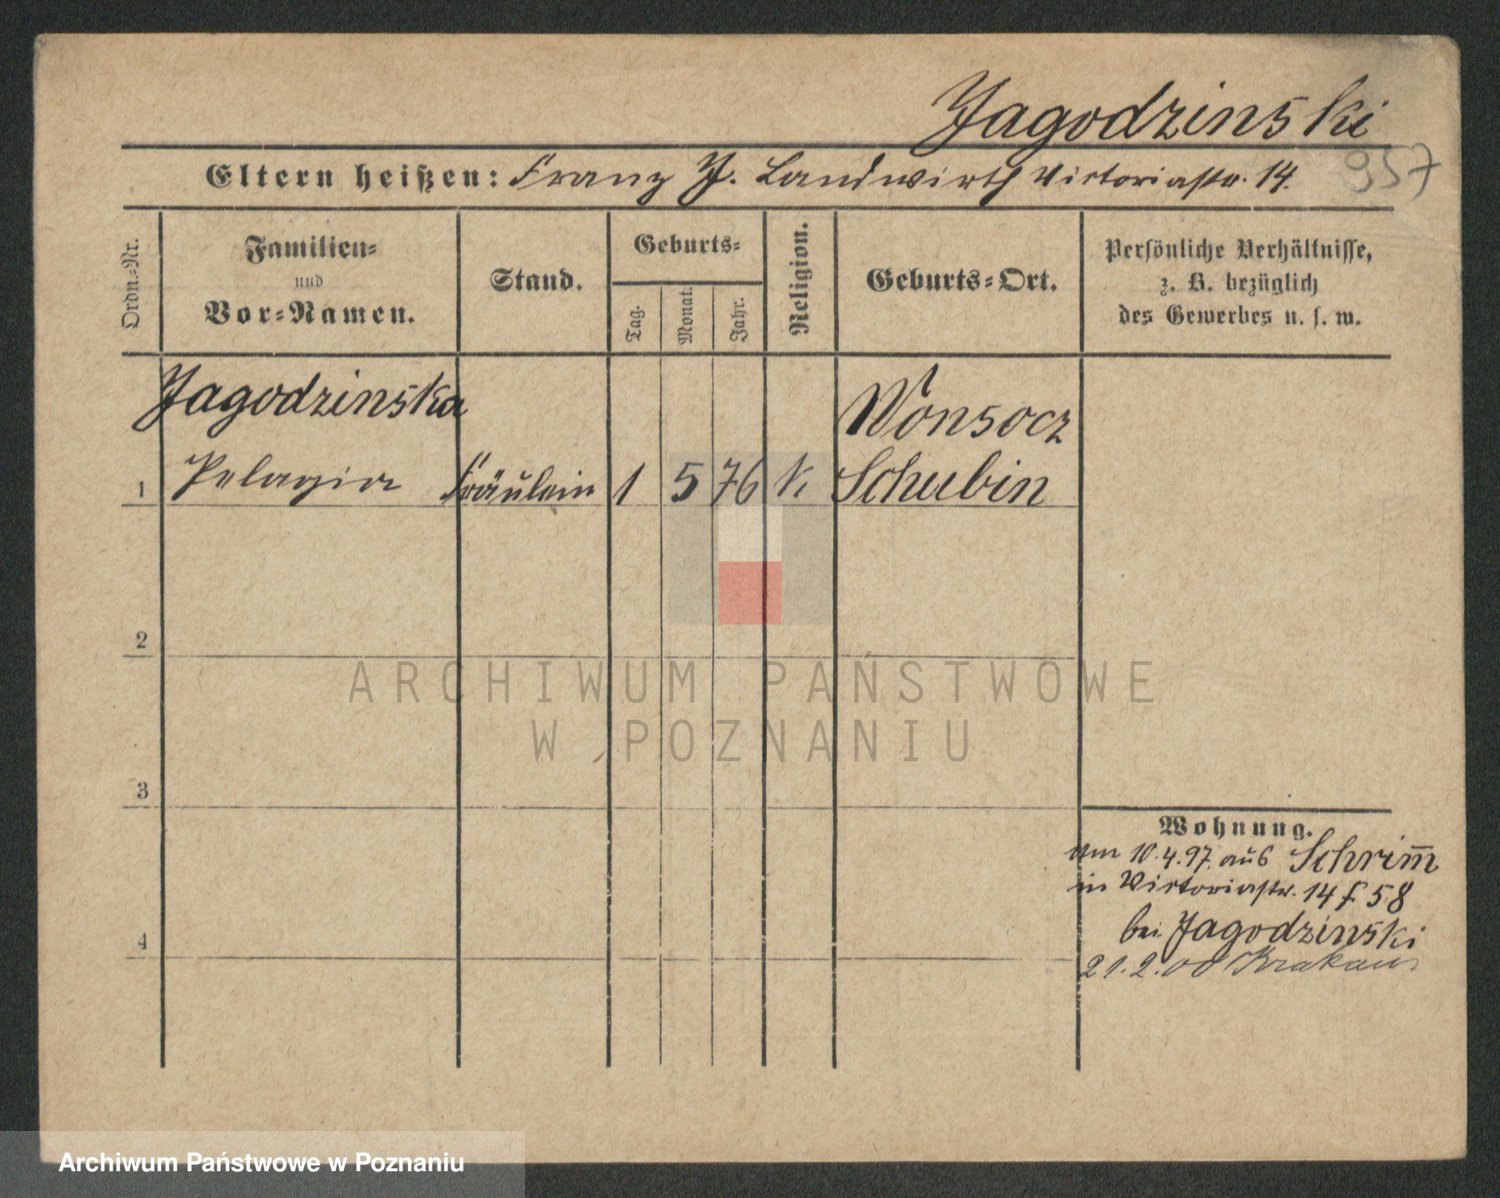 Jagodzinski
957
Eltern heißen: Franz J. Landwirth Victoriastr. 14.
Ordn.-Nr.
Familien-
und
Vor-Namen.
Stand.
Geburts-
Tag.
Monat.
Jahr.
Religion.
Geburts-Ort.
Persönliche Verhältnisse,
z. B. bezüglich
des Gewerbes u. s. w.
Jagodzinska Wonsocz
1 Pelagia Fräulein 1 5 76 K. Schubin
2
ARCHIWUM PAŃSTWOWE
W POZNANIU
3
Wohnung.
am 10.4.97. aus Schrim̅
in Victoriastr. 14 f 58
bei Jagodzinski
4
21.2.00 Krakau
Archiwum Państwowe w Poznaniu